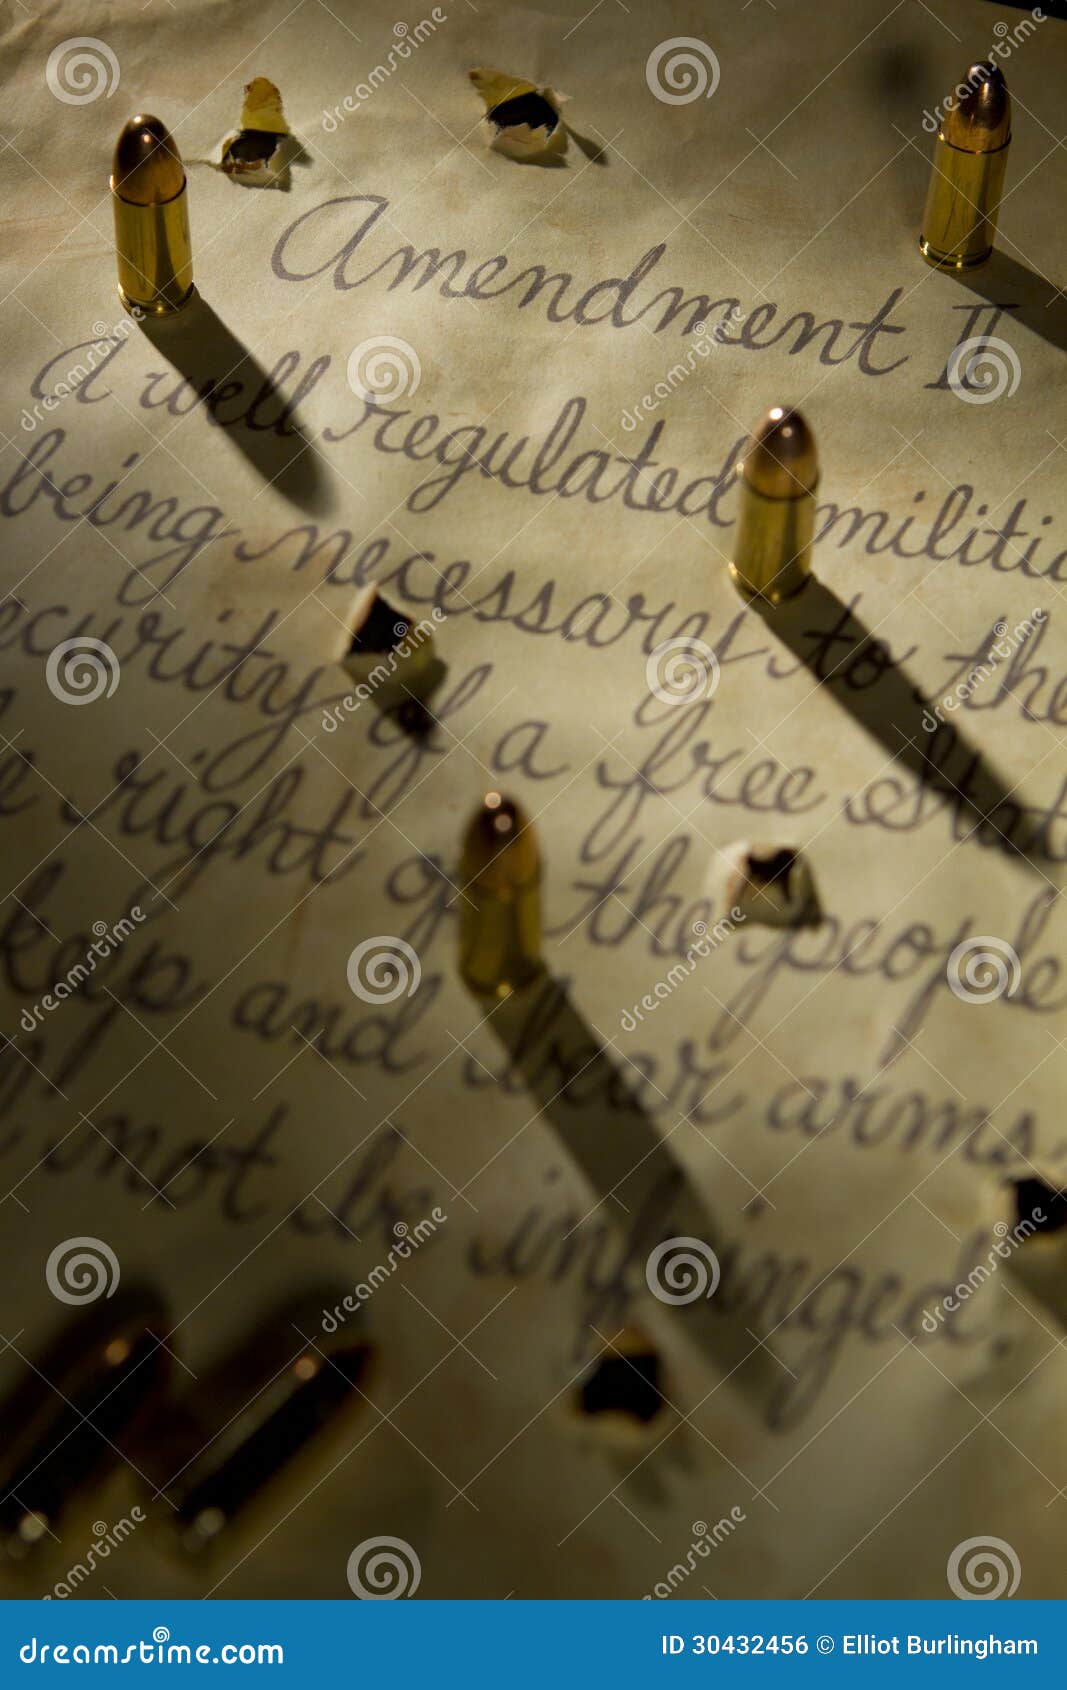 Amendment II
A well regulated militia
being necessary to the
ecurity of a free Stat
e right of the people
keep and bear arms,
not be infringed.
dreamstime.com
ID 30432456 © Elliot Burlingham